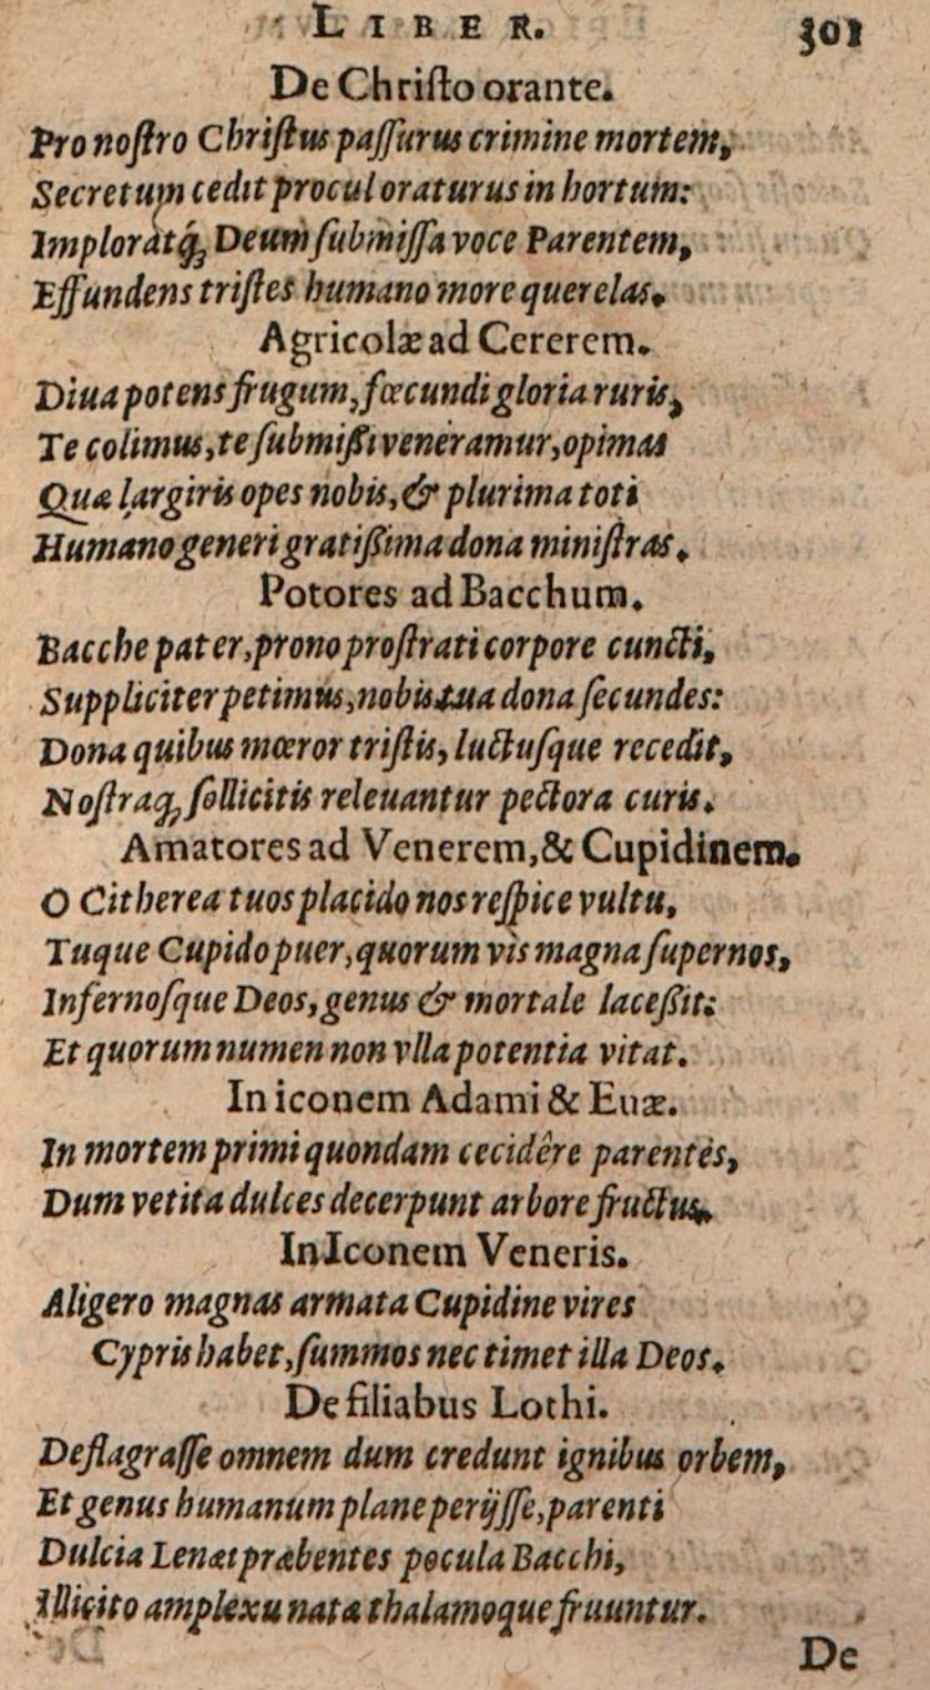 LIBER. 301
De Christo orante.
Pro nostro Christus passurus crimine mortem,
Secretum cedit procul oraturus in hortum:
Imploratq́; Deum submissa voce Parentem,
Effundens tristes humano more querelas.
Agricolæ ad Cererem.
Diua potens frugum, fœcundi gloria ruris,
Te colimus, te submißi veneramur, opimas
Quæ largiris opes nobis, & plurima toti
Humano generi gratißima dona ministras.
Potores ad Bacchum.
Bacche pater, prono prostrati corpore cuncti,
Suppliciter petimus, nobis tua dona secundes:
Dona quibus mœror tristis, luctusque recedit,
Nostraq; sollicitis releuantur pectora curis.
Amatores ad Venerem, & Cupidinem.
O Citherea tuos placido nos respice vultu,
Tuque Cupido puer, quorum vis magna supernos,
Infernosque Deos, genus & mortale laceßit:
Et quorum numen non vlla potentia vitat.
In iconem Adami & Euæ.
In mortem primi quondam cecidêre parentes,
Dum vetita dulces decerpunt arbore fructus.
In Iconem Veneris.
Aligero magnas armata Cupidine vires
Cypris habet, summos nec timet illa Deos.
De filiabus Lothi.
Deflagrasse omnem dum credunt ignibus orbem,
Et genus humanum plane perijsse, parenti
Dulcia Lenæi præbentes pocula Bacchi,
Illicito amplexu natæ thalamoque fruuntur.
De